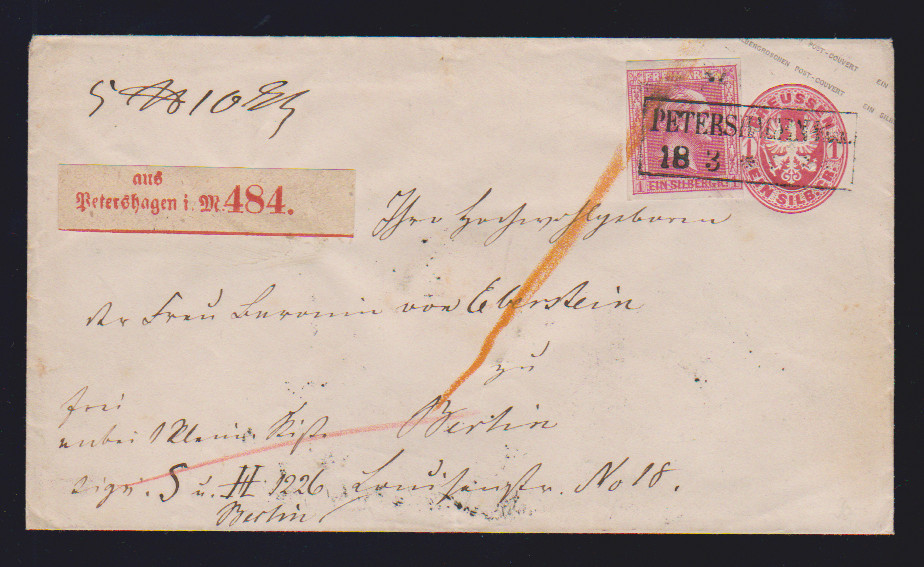 EIN SILBERGROSCHEN POST-COUVERT EIN
POST-COUVERT EIN SILB
5 ℔ 10
FREIMARKE
1 EIN SILBERGR. 1
PREUSSEN
1 1
EIN SILB. GR.
PETERSHAGEN
18 3
aus
Petershagen i. M. 484.
Ihro Hochwohlgeboren
der Frau Baronin von Eberstein
zu
Berlin
frei
anbei 1 kleine Kiste
sign. S u. H 1226
Berlin
Louisenstr. No 18.